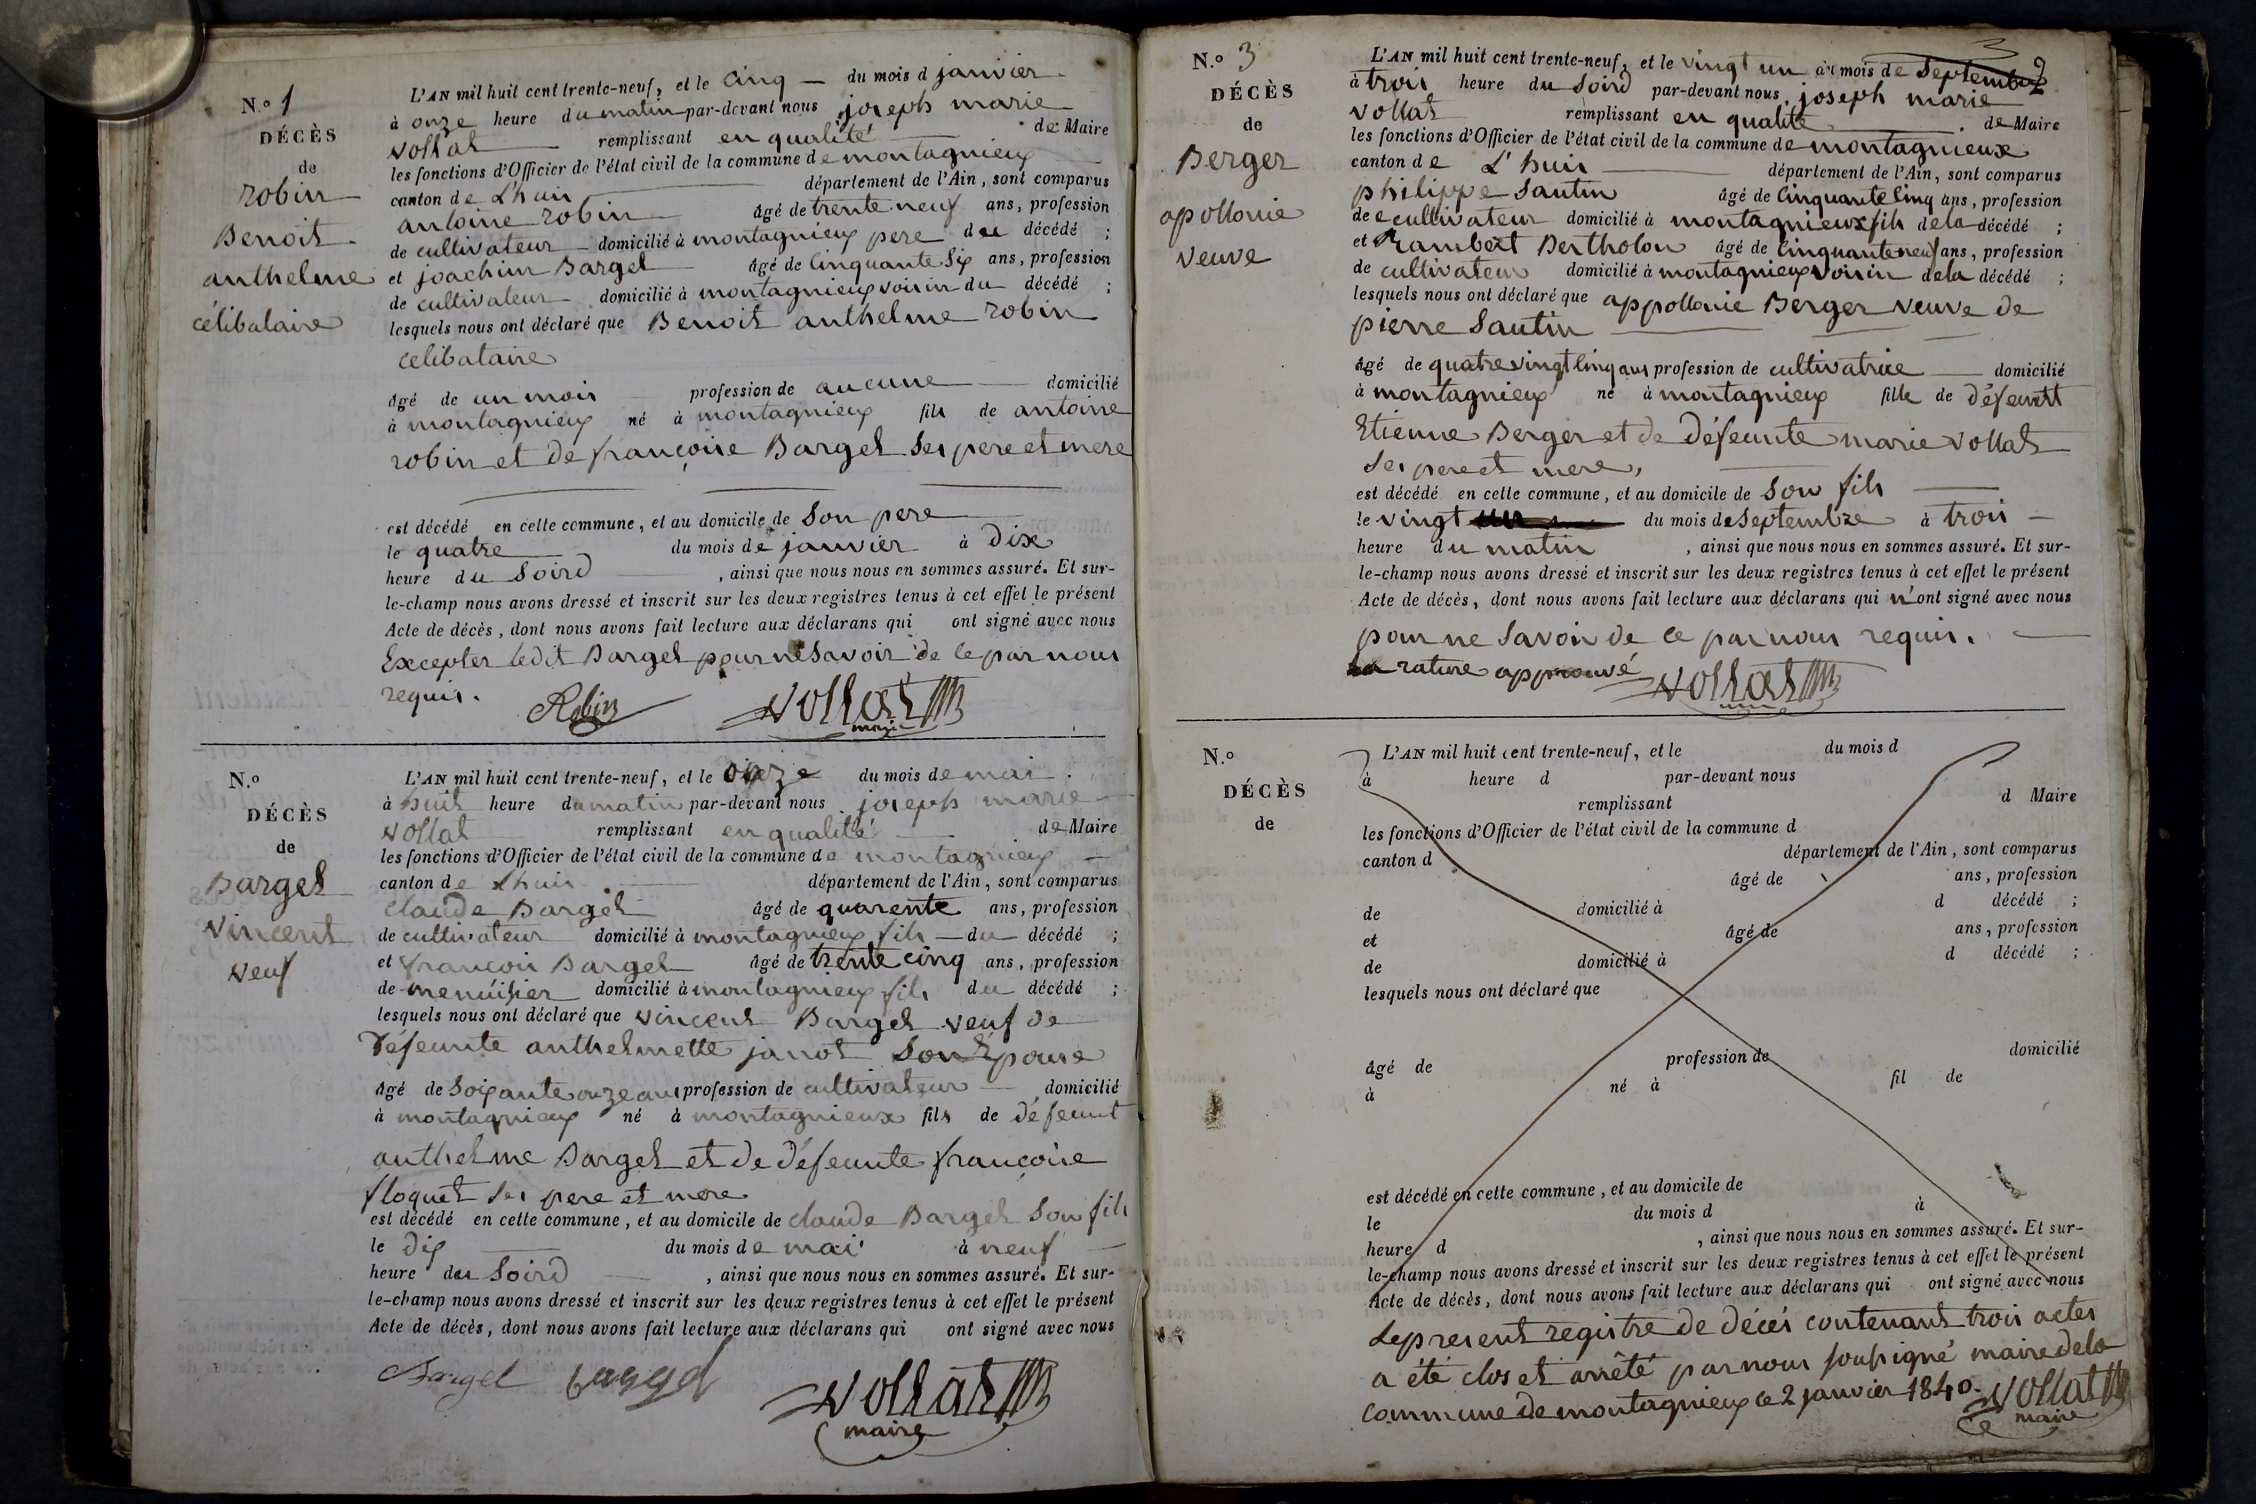 N.º 1
DÉCÈS
de
robin
Benoit
anthelme
célibataire
L'AN mil huit cent trente-neuf, et le Cinq du mois d janvier
à onze heure du matin par-devant nous joseph marie
vollat remplissant en qualité de Maire
les fonctions d'Officier de l'état civil de la commune de montagnieux
canton de L'huis département de l'Ain, sont comparus
antoine robin âgé de trente neuf ans, profession
de cultivateur domicilié à montagnieux pere du décédé ;
et joachim Barget âgé de Cinquante Six ans, profession
de cultivateur domicilié à montagnieux voisin du décédé ;
lesquels nous ont déclaré que Benoit anthelme robin
celibataire
âgé de un mois profession de aucune domicilié
à montagnieux né à montagnieux fils de antoine
robin et de françoise Barget Ses pere et mere
est décédé en cette commune, et au domicile de Son pere
le quatre du mois de janvier à Dix
heure du Soird , ainsi que nous nous en sommes assuré. Et sur-
le-champ nous avons dressé et inscrit sur les deux registres tenus à cet effet le présent
Acte de décès, dont nous avons fait lecture aux déclarans qui ont signé avec nous
Excepter ledit Barget pour ne Savoir de ce par nous
requis.
Robin vollat
maire
N.º
DÉCÈS
de
Barget
vincent
veuf
L'AN mil huit cent trente-neuf, et le onze du mois de mai
à huit heure du matin par-devant nous joseph marie
vollat remplissant en qualité de Maire
les fonctions d'Officier de l'état civil de la commune de montagnieux
canton de Lhuis département de l'Ain, sont comparus
Claude Barget âgé de quarente ans, profession
de cultivateur domicilié à montagnieux fils du décédé ;
et françois Barget âgé de trente cinq ans, profession
de menuisier domicilié à montagnieux fils du décédé ;
lesquels nous ont déclaré que vincent Barget veuf de
Défeunte anthelmette janot Son Epouse
âgé de Soixante onze ans profession de cultivateur domicilié
à montagnieux né à montagnieux fils de défeunt
anthelme Barget et de défeunte françoise
floquet Ses pere et mere
est décédé en cette commune, et au domicile de claude Barget Son fils
le dix du mois de mai à neuf
heure du Soird , ainsi que nous nous en sommes assuré. Et sur-
le-champ nous avons dressé et inscrit sur les deux registres tenus à cet effet le présent
Acte de décès, dont nous avons fait lecture aux déclarans qui ont signé avec nous
Bargel bargel vollat
maire
3
N.º 3
DÉCÈS
de
Berger
apollonie
veuve
L'AN mil huit cent trente-neuf, et le vingt un du mois de Septembre
à trois heure du Soird par-devant nous joseph marie
vollat remplissant en qualité de Maire
les fonctions d'Officier de l'état civil de la commune de montagnieux
canton de L'huis département de l'Ain, sont comparus
philippe Santin âgé de Cinquante Cinq ans, profession
de cultivateur domicilié à montagnieux fils de la décédé ;
et Rambert Bertholon âgé de Cinquante neuf ans, profession
de cultivateur domicilié à montagnieux voisin de la décédé ;
lesquels nous ont déclaré que appollonie Berger veuve de
pierre Santin
âgé de quatre vingt Cinq ans profession de cultivatrice domicilié
à montagnieux né à montagnieux fille de défeunt
Etienne Berger et de défeunte marie vollat
Ses pere et mere,
est décédé en cette commune, et au domicile de Son fils
le vingt un du mois de Septembre à trois
heure du matin , ainsi que nous nous en sommes assuré. Et sur-
le-champ nous avons dressé et inscrit sur les deux registres tenus à cet effet le présent
Acte de décès, dont nous avons fait lecture aux déclarans qui n'ont signé avec nous
pour ne Savoir de ce par nous requis.
la rature approuvé vollat
N.º
DÉCÈS
de
L'AN mil huit cent trente-neuf, et le du mois d
à heure d par-devant nous
remplissant d Maire
les fonctions d'Officier de l'état civil de la commune d
canton d département de l'Ain, sont comparus
âgé de ans, profession
de domicilié à d décédé ;
et âgé de ans, profession
de domicilié à d décédé ;
lesquels nous ont déclaré que
âgé de profession de domicilié
à né à fil de
est décédé en cette commune, et au domicile de
le du mois d à
heure d , ainsi que nous nous en sommes assuré. Et sur-
le-champ nous avons dressé et inscrit sur les deux registres tenus à cet effet le présent
Acte de décès, dont nous avons fait lecture aux déclarans qui ont signé avec nous
Le present registre de décès contenant trois actes
a été clos et arrêté par nous soussigné maire de la
Commune de montagnieux ce 2 janvier 1840. vollat
maire